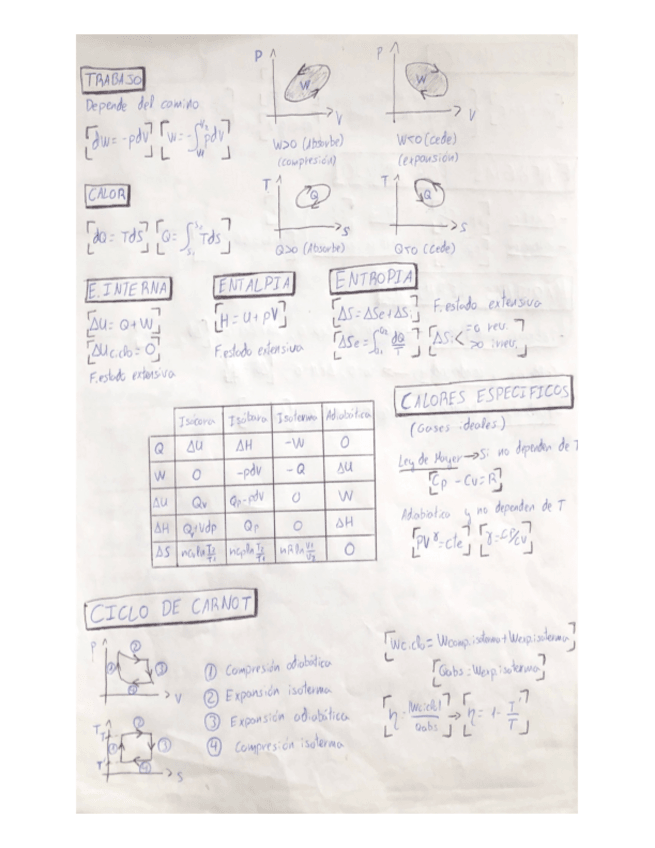 TRABAJO
Depende del camino
[dW = -pdV] [W = -∫V₁V₂ pdV]
P
W
V
W>0 (Absorbe)
(compresión)
P
W
V
W<0 (Cede)
(expansión)
CALOR
[dQ = TdS] [Q = ∫S₁S₂ TdS]
T
Q
S
Q>0 (Absorbe)
T
Q
S
Q<0 (Cede)
E.INTERNA
[ΔU = Q+W]
[ΔUciclo = 0]
F.estado extensiva
ENTALPIA
[H = U+pV]
F.estado extensiva
ENTROPIA
[ΔS = ΔSe+ΔSi] F.estado extensiva
[ΔSe = ∫ dQ/T] [ΔSi < =0 rev. >0 irrev.]
Isócora Isóbara Isoterma Adiabática
Q ΔU ΔH -W 0
W 0 -pdv -Q ΔU
ΔU Qv Qp-pdv 0 W
ΔH Qv+Vdp Qp 0 ΔH
ΔS ncvln T2/T1 ncpln T2/T1 nRln 0
CALORES ESPECIFICOS
(Gases ideales)
Ley de Mayer → Si no dependen de T
[Cp - Cv = R]
Adiabática y no dependen de T
[PVᵞ = cte] [γ = Cp/Cv]
CICLO DE CARNOT
P
① ② ③ ④
V
T
T
① ② ③ ④
T'
S
① Compresión adiabática
② Expansión isoterma
③ Expansión adiabática
④ Compresión isoterma
[Wciclo = Wcomp.isoterma + Wexp.isoterma]
[Qabs = Wexp.isoterma]
[η = |Wciclo|/Qabs] → [η = 1 - T'/T]